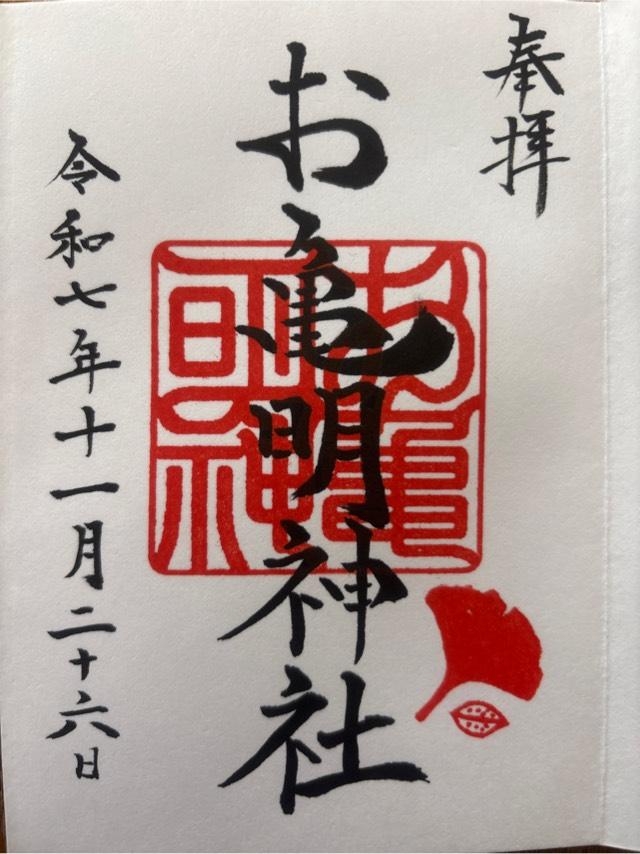 奉拝
お亀明神社
お亀明神
令和七年十一月二十六日